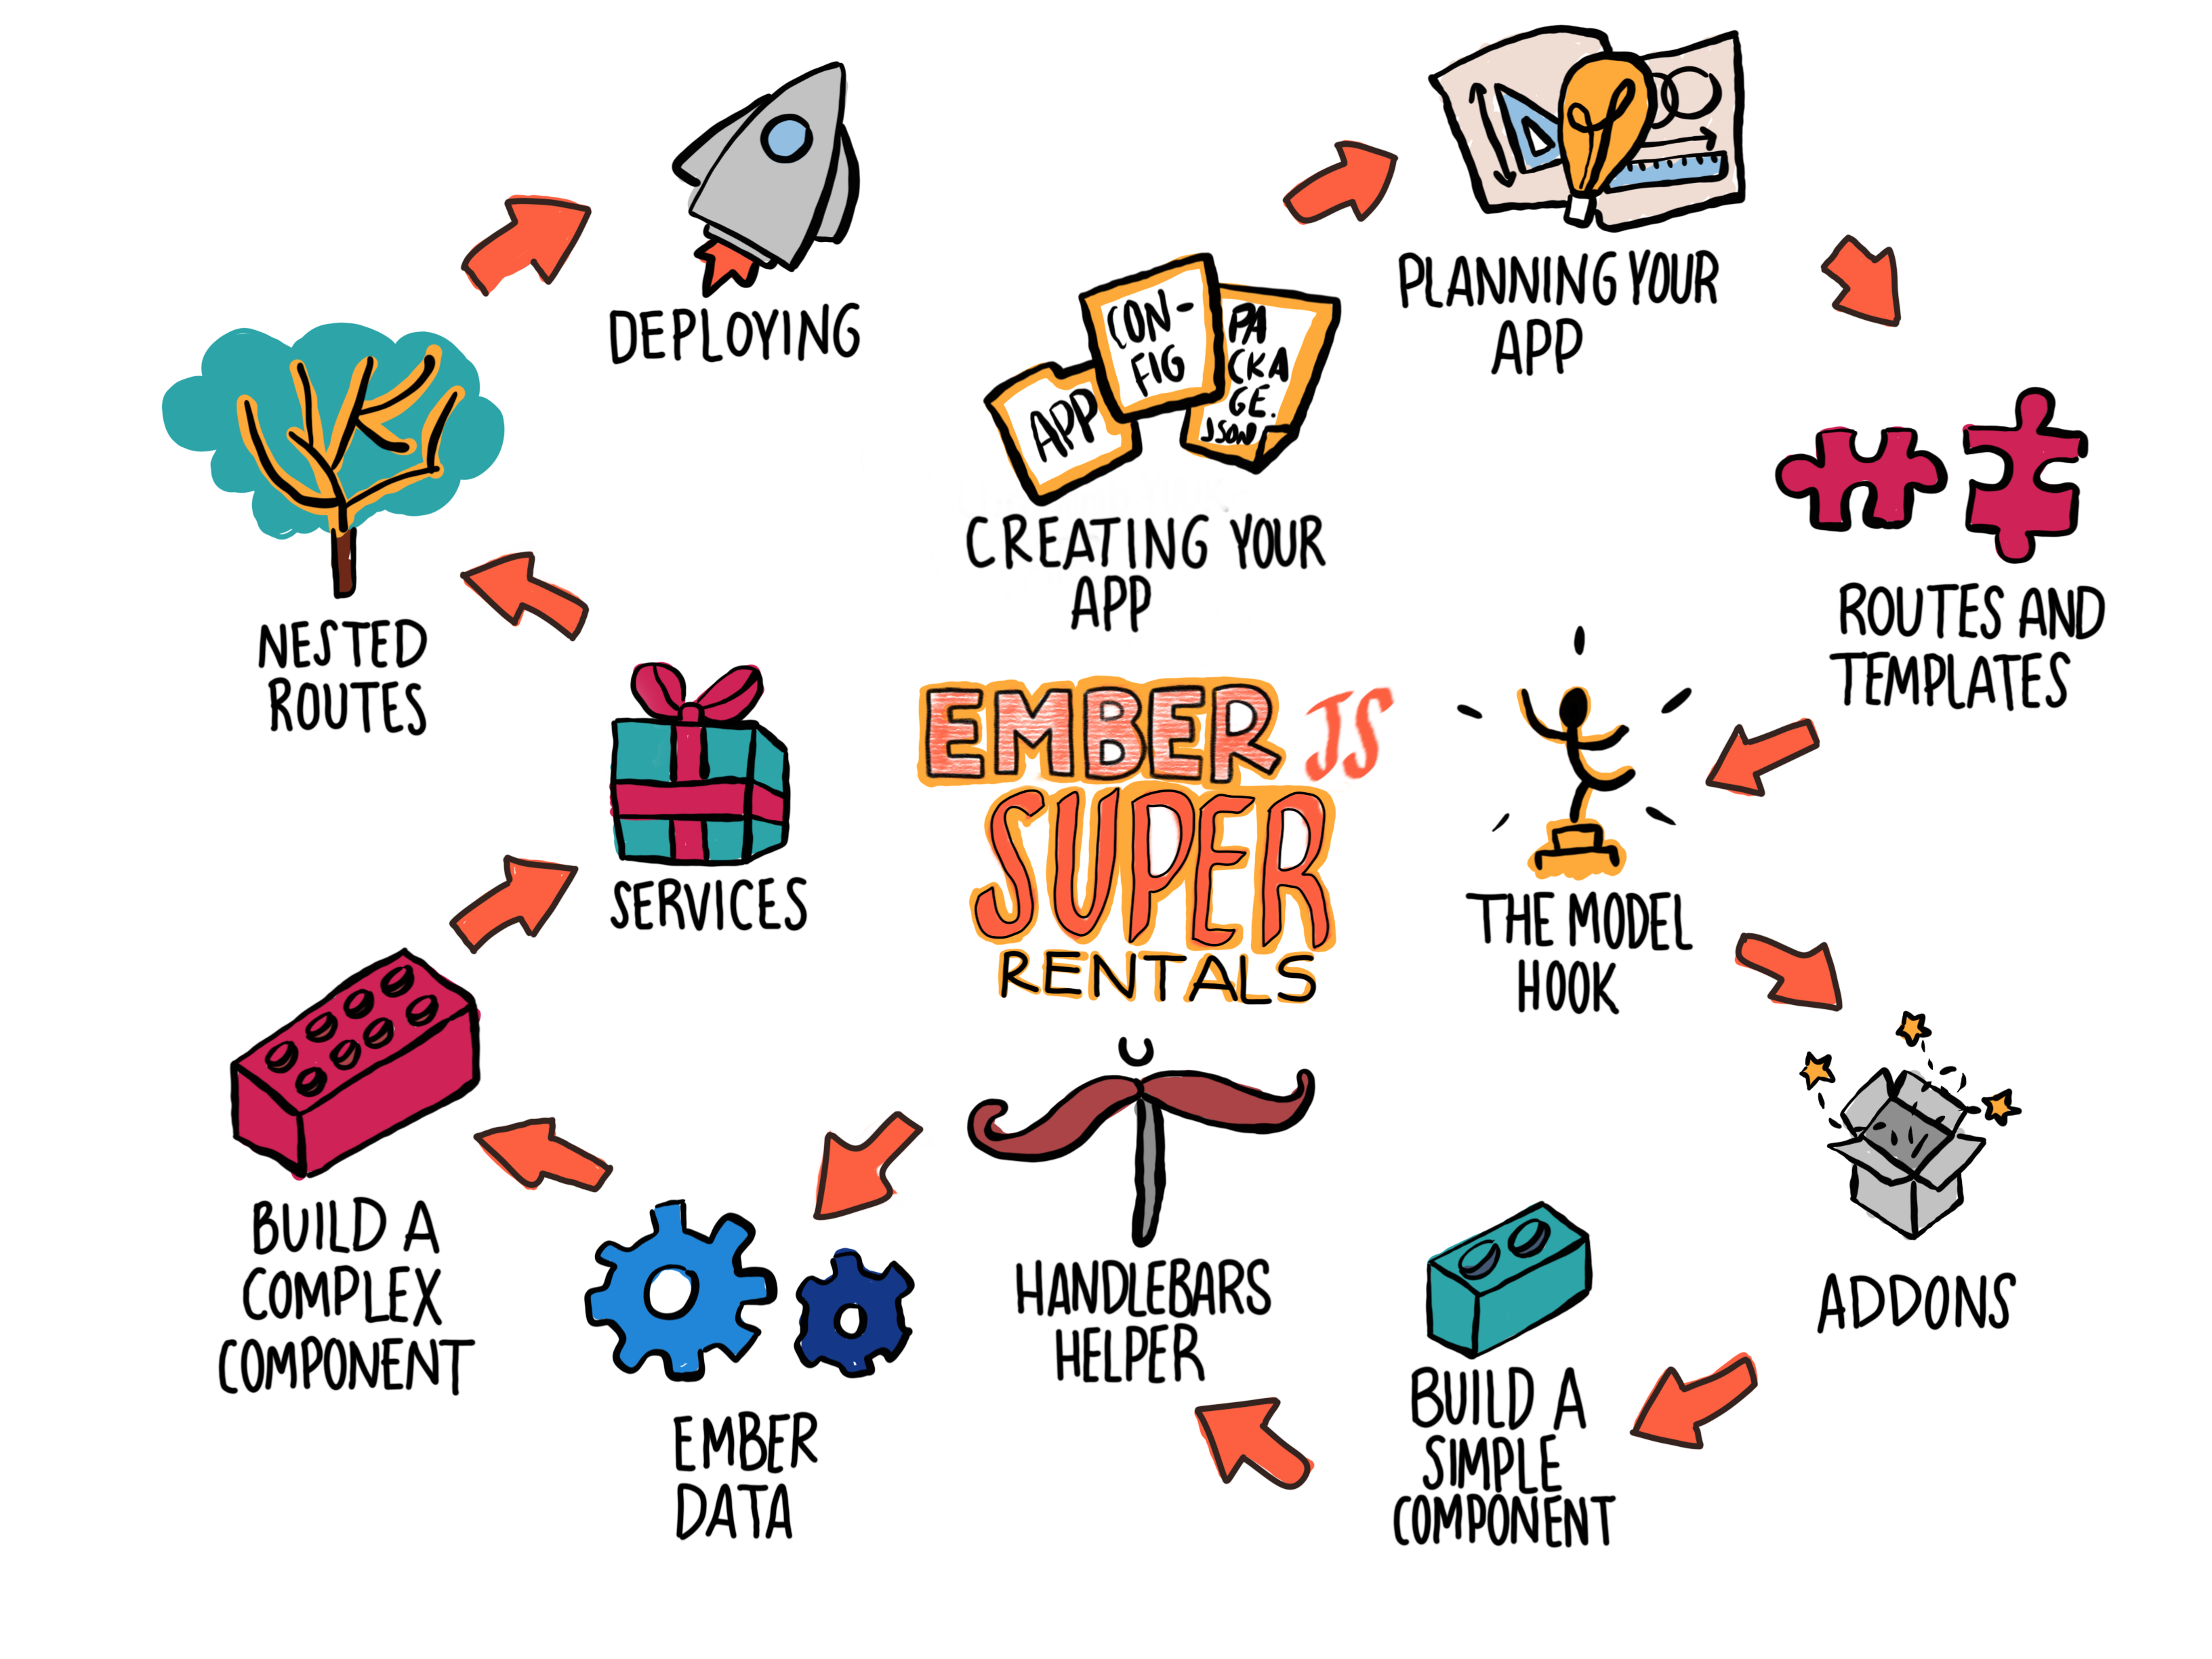 EMBER JS
SUPER
RENTALS
APP
CON-
FIG
PA
CKA
GE.
JSON
CREATING YOUR
APP
PLANNING YOUR
APP
ROUTES AND
TEMPLATES
THE MODEL
HOOK
ADDONS
BUILD A
SIMPLE
COMPONENT
HANDLEBARS
HELPER
EMBER
DATA
BUILD A
COMPLEX
COMPONENT
SERVICES
NESTED
ROUTES
DEPLOYING